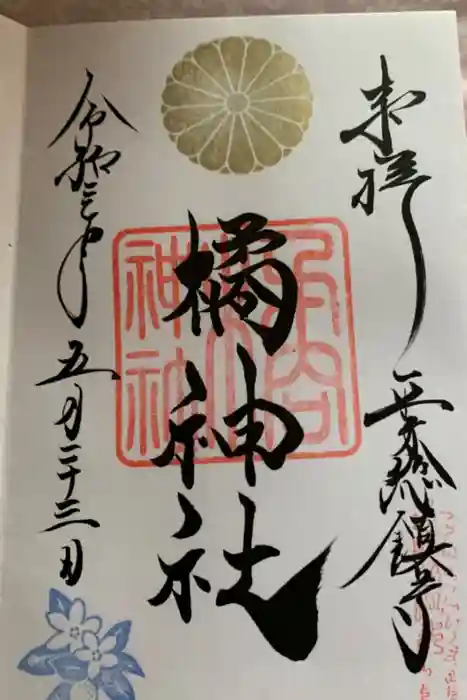 奉拝
総鎮守
橘神社
令和三年五月二十三日
神社